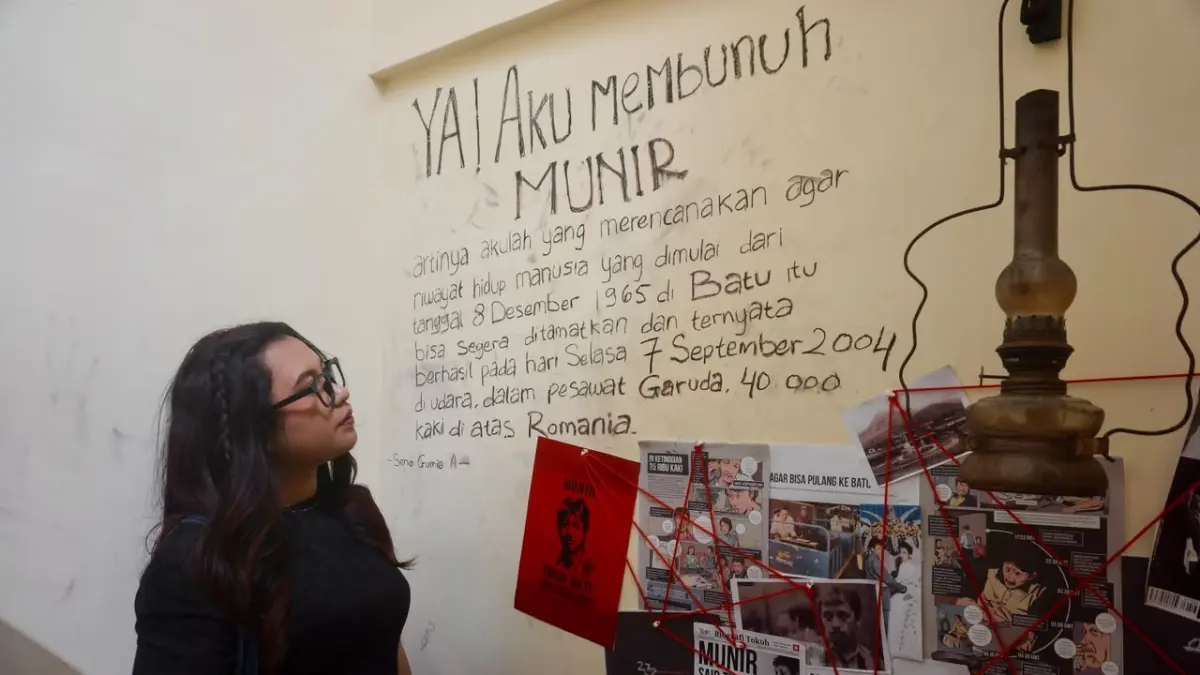 YA! AKU MEMBUNUH
MUNIR
artinya akulah yang merencanakan agar
riwayat hidup manusia yang dimulai dari
tanggal 8 Desember 1965 di Batu itu
bisa segera ditamatkan dan ternyata
berhasil pada hari Selasa 7 September 2004
di udara, dalam pesawat Garuda, 40.000
kaki di atas Romania.
~Seno Gumira A—
DI KETINGGIAN
35 RIBU KAKI
AGAR BISA PULANG KE BATU
Biografi Tokoh
MUNIR